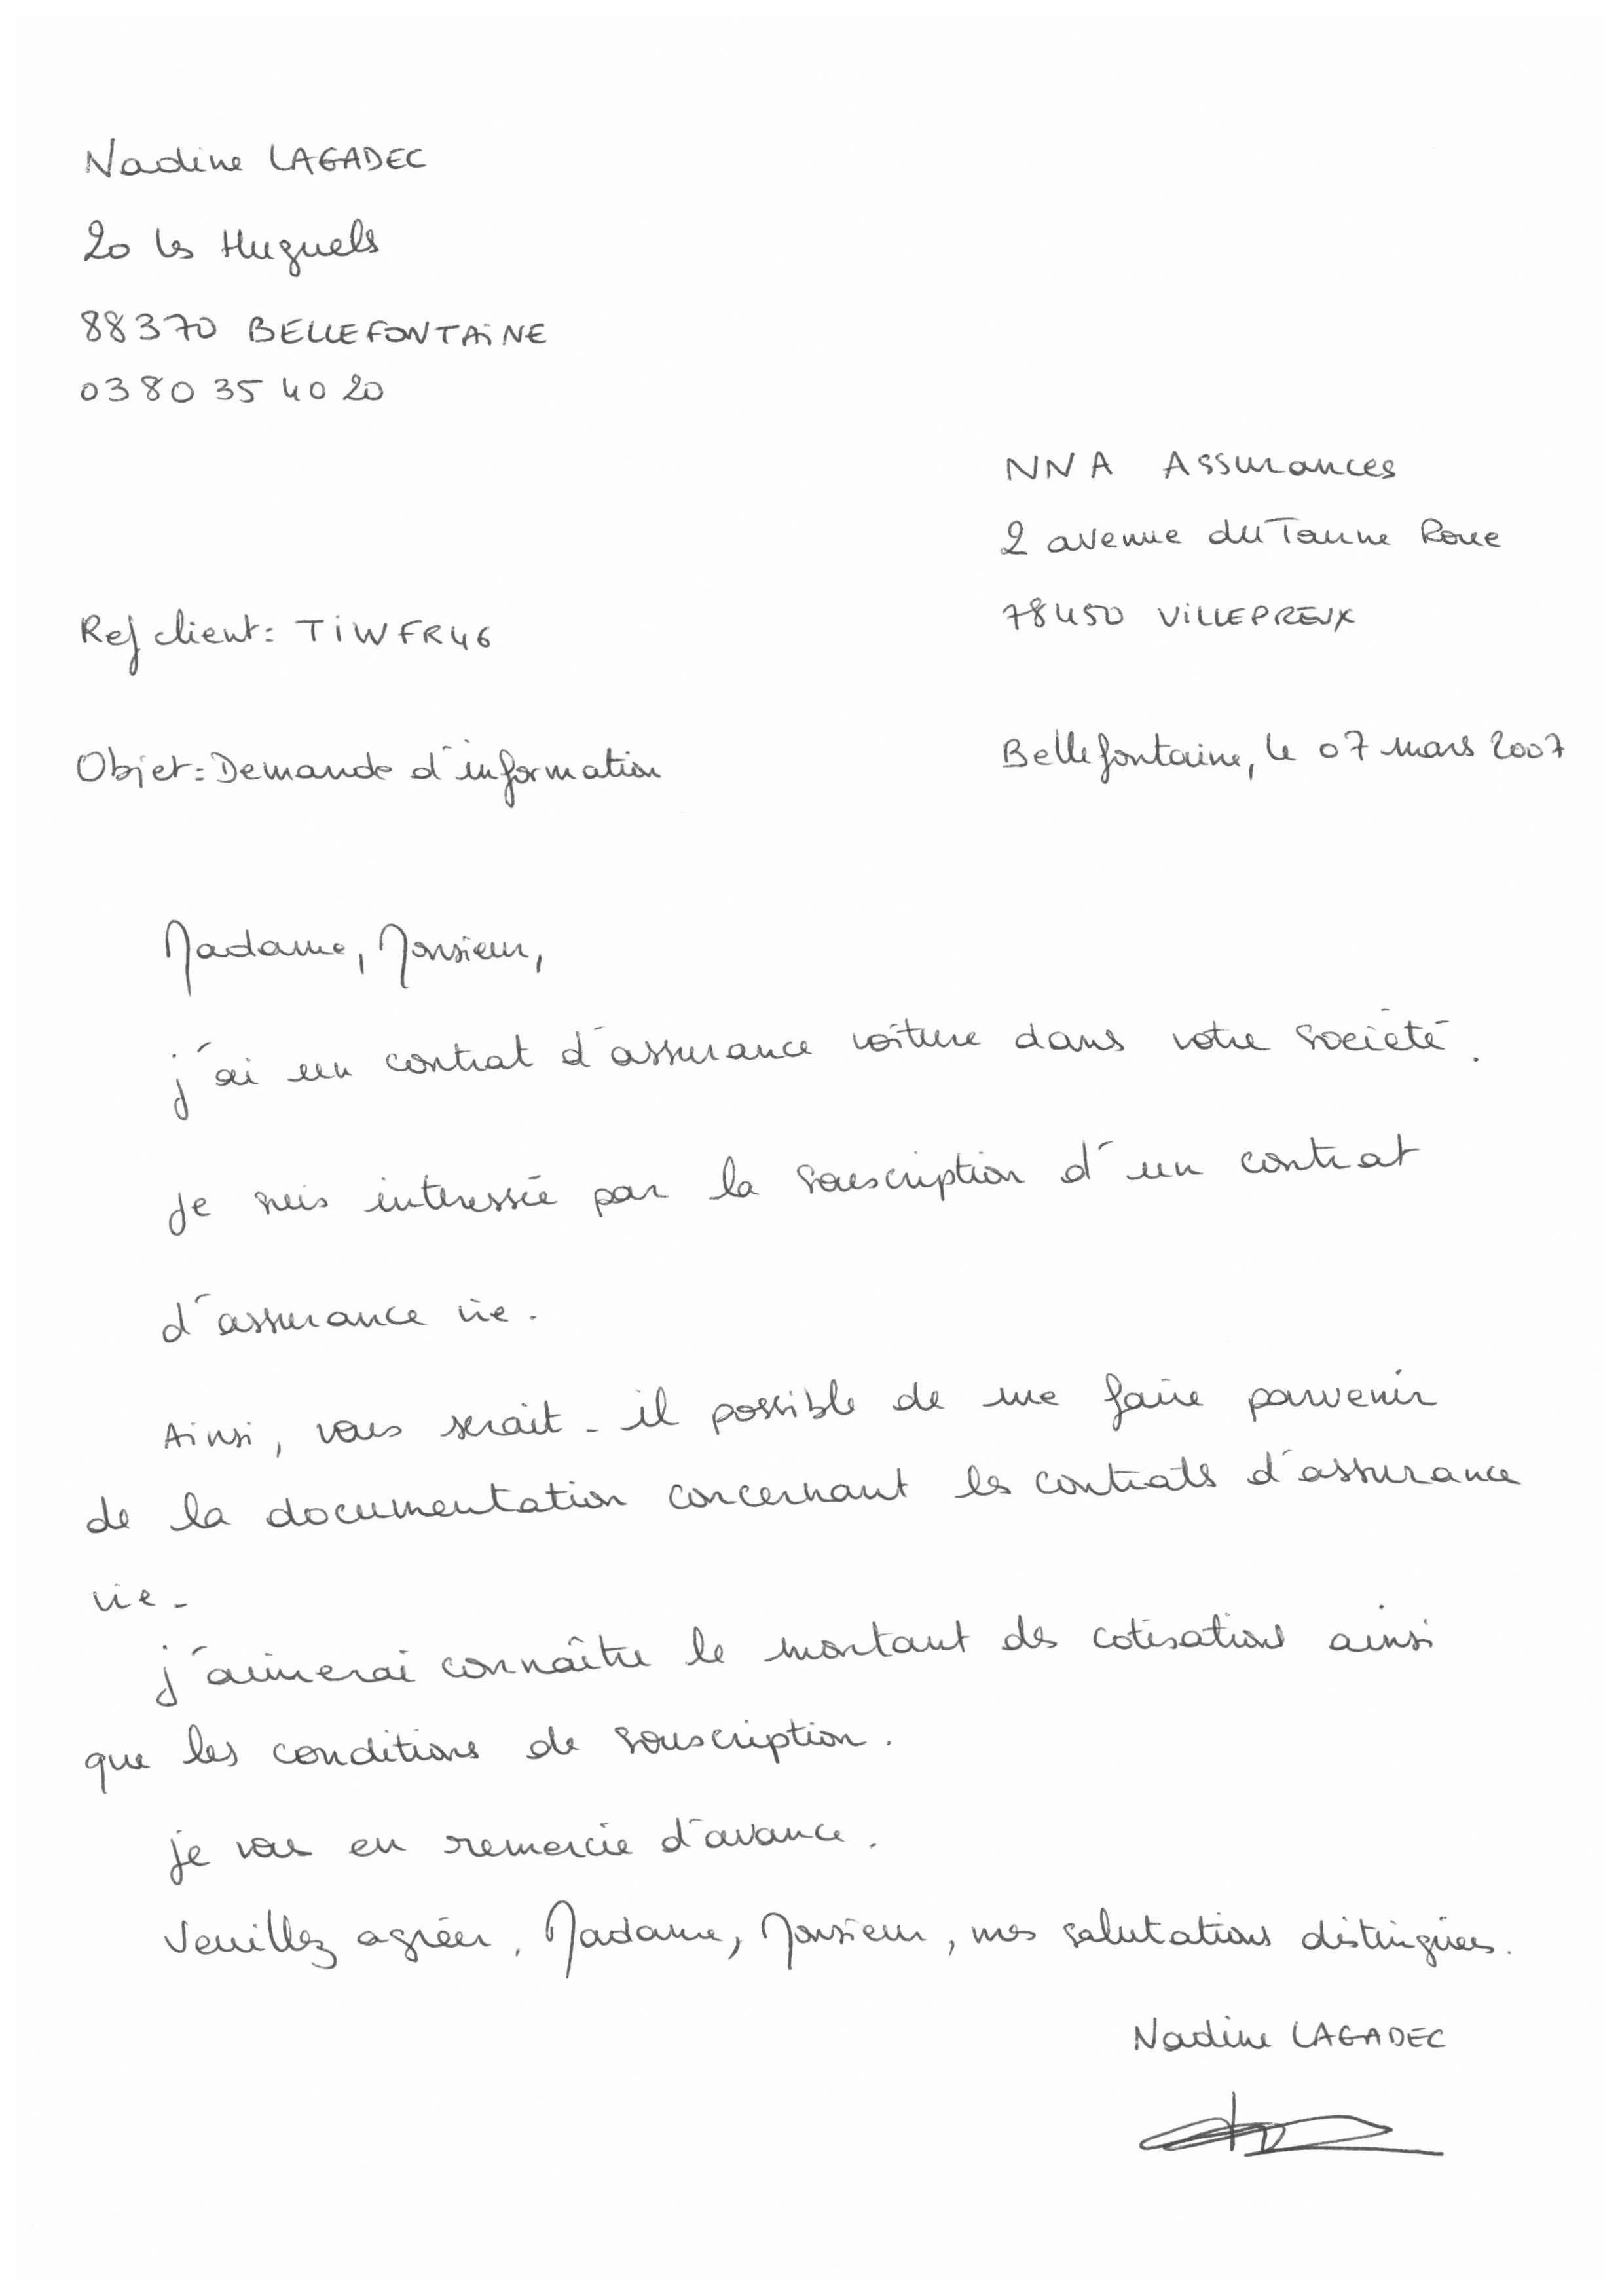 Nadine LAGADEC
20 les Huguels
88370 BELLEFONTAINE
03 80 35 40 20
NNA Assurances
2 avenue du Taune Roue
78450 VILLEPREUX
Ref client: TIWFR46
Objet: Demande d'information
Bellefontaine, le 07 mars 2007
Madame, Monsieur,
j'ai un contrat d'assurance voiture dans votre société.
Je suis interessée par la souscription d'un contrat
d'assurance vie.
Ainsi, vous serait-il possible de me faire parvenir
de la documentation concernant les contrats d'assurance
vie.
j'aimerai connaître le montant des cotisations ainsi
que les conditions de souscription.
je vous en remercie d'avance.
Veuillez agréer, Madame, Monsieur, mes salutations distinguées.
Nadine LAGADEC